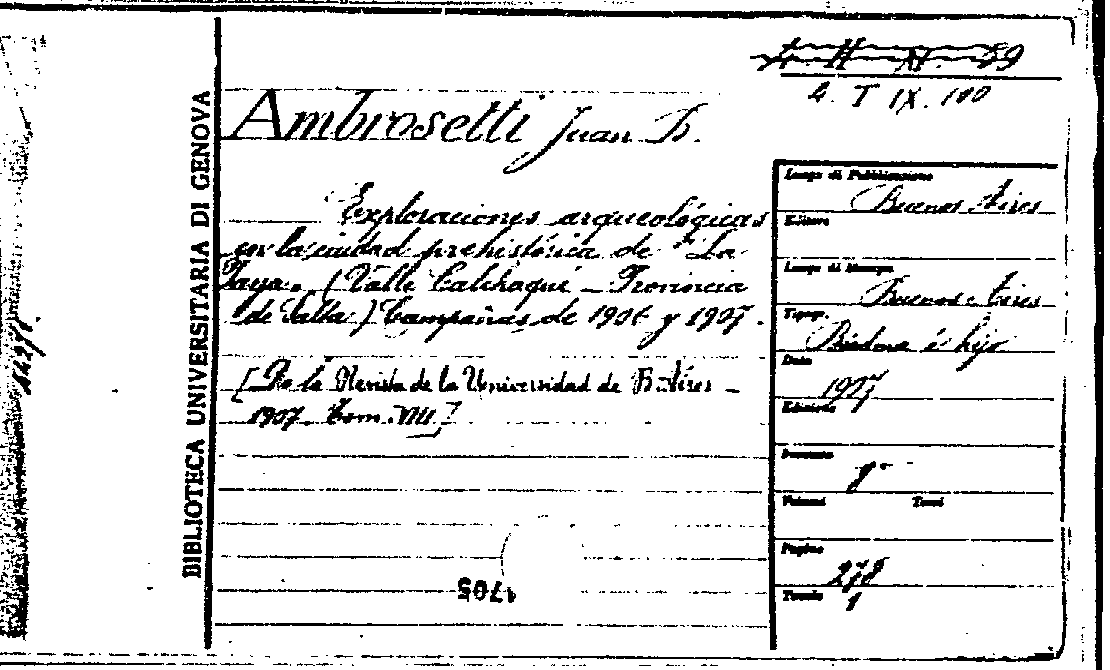 A. T IX. 100
Ambrosetti Juan B.
Exploraciones arqueológicas
en la ciudad prehistórica de "La
Paya. (Valle Calchaquí - Provincia
de Salta) Campañas de 1906 y 1907.
[De la Revista de la Universidad de B. Aires -
1907. Tom. VIII]
BIBLIOTECA UNIVERSITARIA DI GENOVA
Luogo di Pubblicazione
Buenos Aires
Editore
Luogo di Stampa
Buenos Aires
Tipogr.
é hijo
Data
1907
Edizione
Formato
8°
Volumi Tomi
Pagine
278
Tavole
1
1705